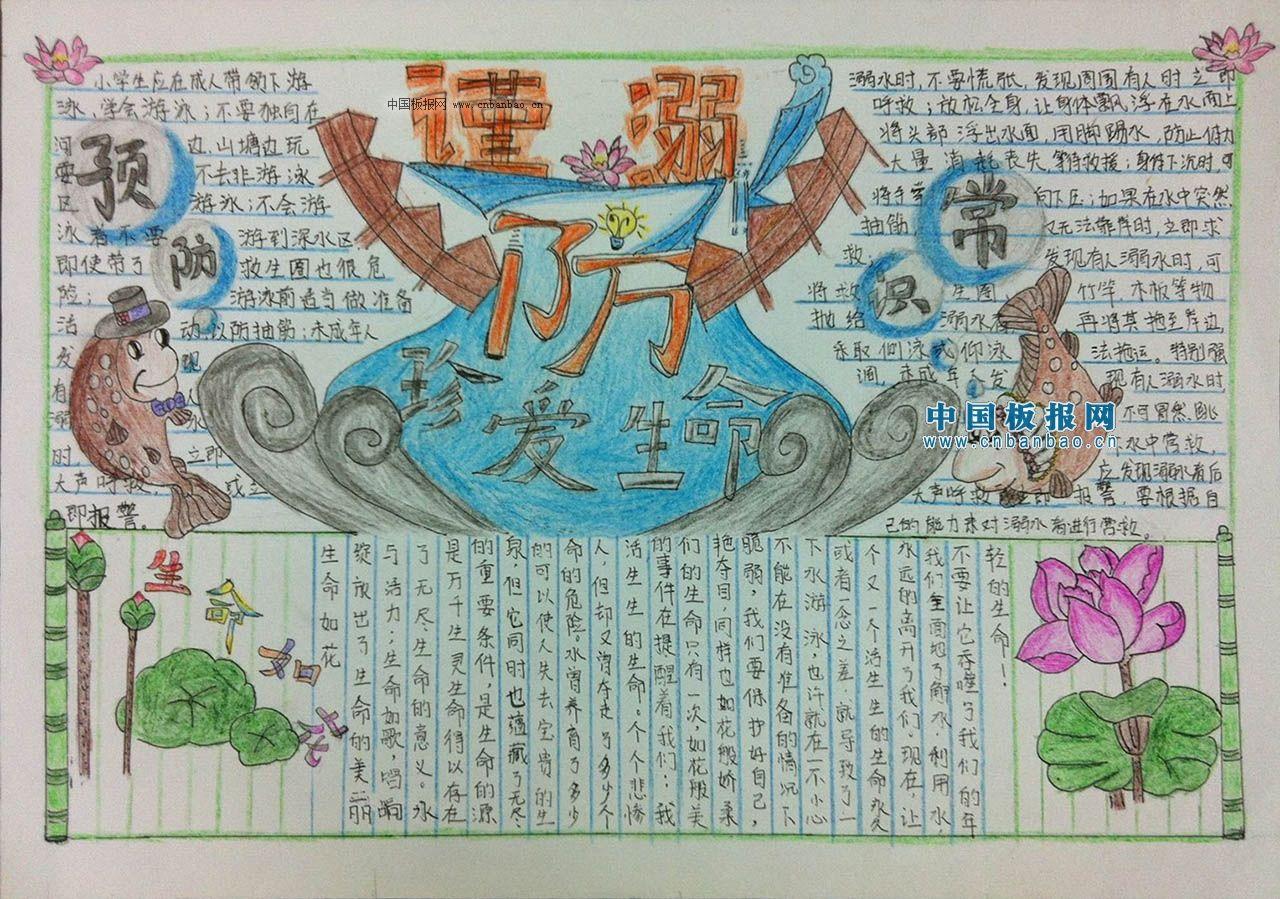 谨防溺水
珍爱生命
中国板报网 www.cnbanbao.cn
预防
小学生应在成人带领下游
泳，学会游泳；不要独自在
河边、山塘边玩
要不去非游泳
区游泳；不会游
泳者不要游到深水区，
即使带了救生圈也很危
险；游泳前适当做准备
活动，以防抽筋；未成年人
发现
有人
溺水
时立即
大声呼救，或立
即报警。
常识
溺水时，不要慌张，发现周围有人时立即
呼救；放松全身，让身体飘浮在水面上
将头部浮出水面，用脚踢水，防止体力
大量消耗丧失，等待救援；身体下沉时可
将手掌向下压；如果在水中突然
抽筋又无法靠岸时，立即求
救；发现有人溺水时，可
将救生圈、竹竿、木板等物
抛给溺水者再将其拖至岸边，
采取侧泳或仰泳法拖运。特别强
调，未成年人发现有人溺水时
不可冒然跳
水中营救
应发现溺水者后
大声呼救立即报警，要根据自
己的能力来对溺水者进行营救。
中国板报网
www.cnbanbao.cn
生命如花
生命如花
绽放出了生命的美丽
与活力；生命如歌，唱响
了无尽生命的意义。水
是万千生灵生命得以存在
的重要条件，是生命的源
泉，但它同时也蕴藏了无尽
的可以使人失去宝贵的生
命的危险。水曾养育了多少
人，但却又曾夺走了多少个
活生生的生命。个个悲惨
的事件在提醒着我们：我
们的生命只有一次，如花般美
艳夺目，同持也如花般娇柔
脆弱，我们要保护好自己，
不能在没有准备的情况下
下水游泳，也许就在一不小心
或者一念之差，就导致了一
个又一个活生生的生命永久
永远的离开了我们。现在，让
我们全面地了解水，利用水，
不要让它吞噬了我们的年
轻的生命！